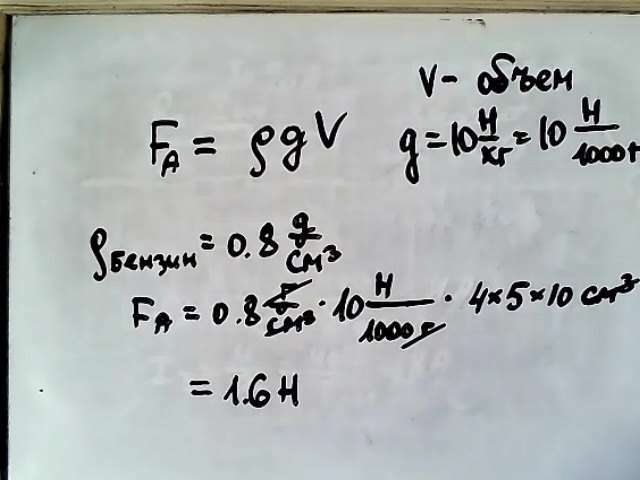 V - объем
F_A = ρgV
g = 10 Н/кг = 10 Н/1000 г
ρ бензин = 0.8 g/см³
F_A = 0.8 г/см³ · 10 Н/1000 г · 4×5×10 см³
= 1.6 Н